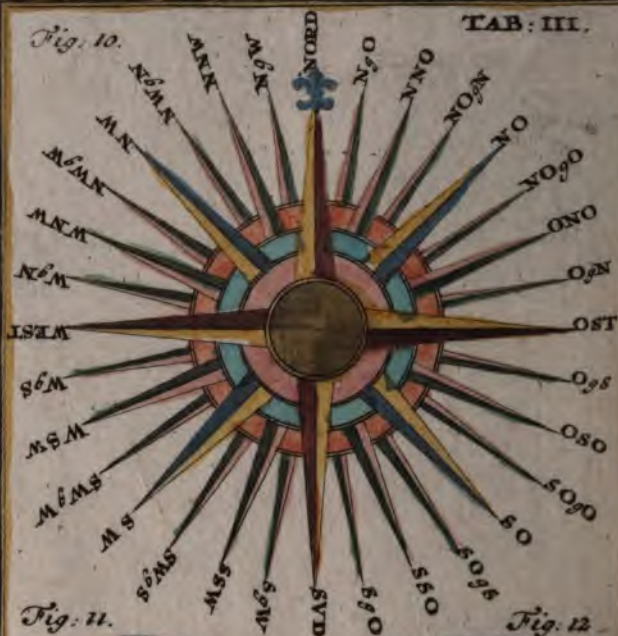 Fig: 10.
TAB: III.
NORD
NgO
NNO
NOgN
NO
NOgO
ONO
OgN
OST
OgS
OSO
SOgO
SO
SOgS
SSO
SgO
SVD
SgW
SSW
SWgS
SW
SWgW
WSW
WgS
WEST
WgN
WNW
NWgW
NW
NWgN
NNW
NgW
Fig: 11.
Fig: 12